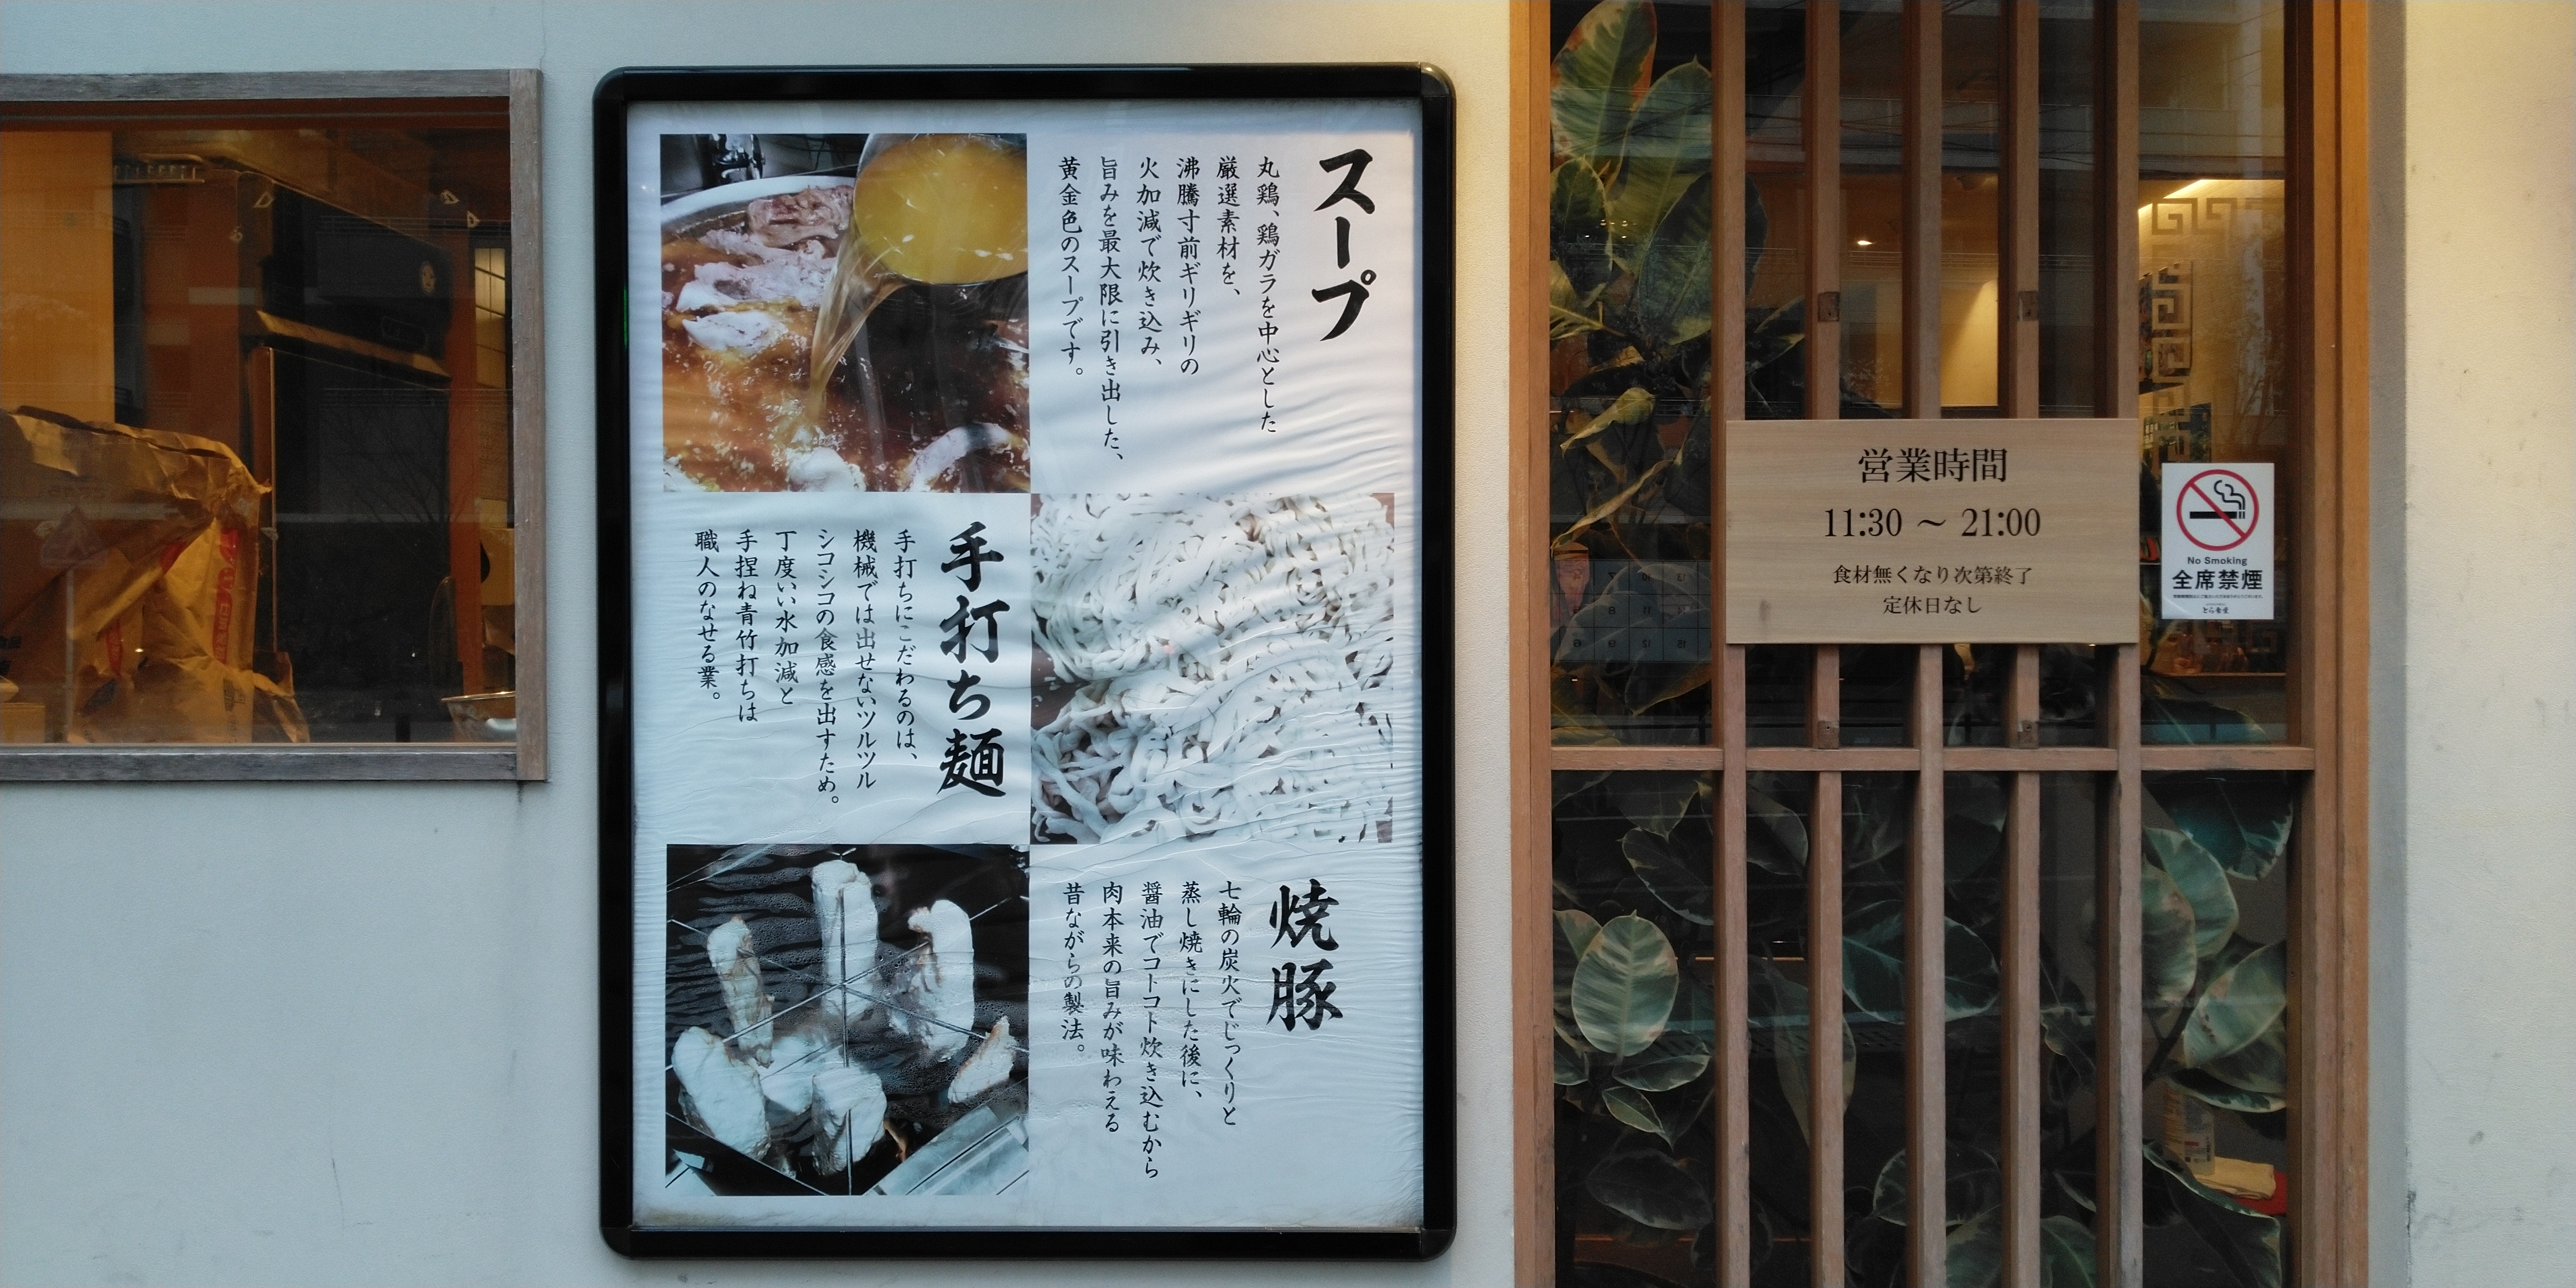 スープ
丸鶏、鶏ガラを中心とした
厳選素材を、
沸騰寸前ギリギリの
火加減で炊き込み、
旨みを最大限に引き出した、
黄金色のスープです。
手打ち麺
手打ちにこだわるのは、
機械では出せないツルツル
シコシコの食感を出すため。
丁度いい水加減と
手捏ね青竹打ちは
職人のなせる業。
焼豚
七輪の炭火でじっくりと
蒸し焼きにした後に、
醤油でコトコト炊き込むから
肉本来の旨みが味わえる
昔ながらの製法。
営業時間
11:30 ～ 21:00
食材無くなり次第終了
定休日なし
No Smoking
全席禁煙
とら食堂